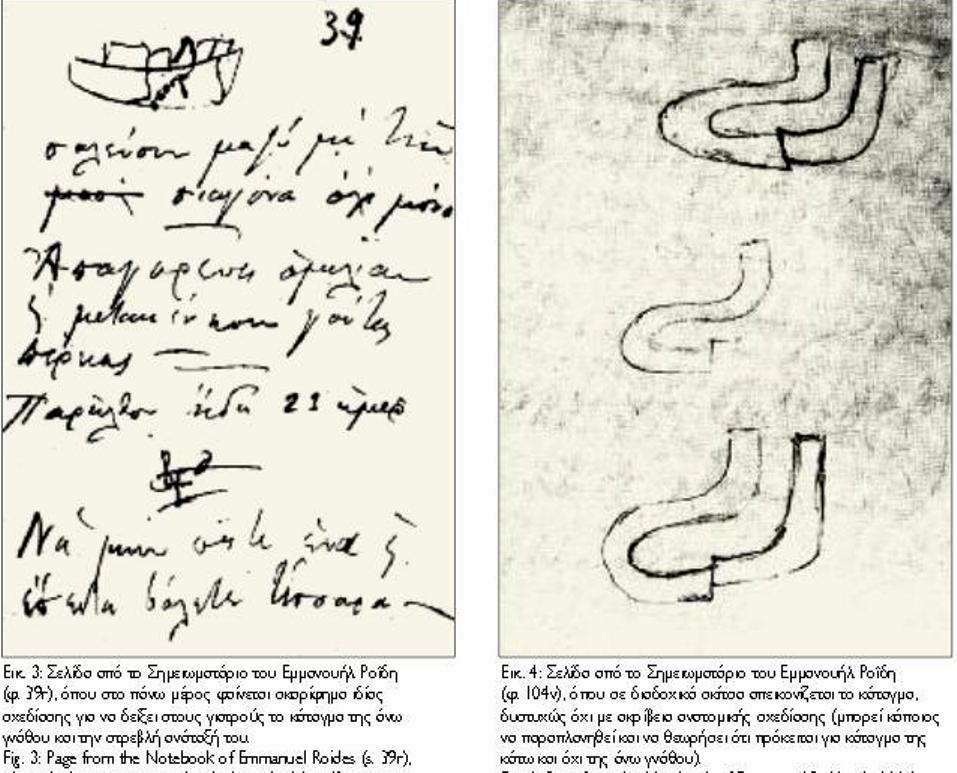 39
σαλεύουν μαζύ μὲ
σιαγόνα ὄχι μόνο
Ἀπαγορεύει ὁμιλίαν
ἢ
Παρῆλθον ἤδη 21 ἡμέρ
Νὰ μὴν ἕνα ἢ
ἔπειτα βάλετε τέσσαρα
Εικ. 3: Σελίδα από το Σημειωματάριο του Εμμανουήλ Ροΐδη
(φ. 39r), όπου στο πάνω μέρος φαίνεται σκαρίφημα ιδίας
σχεδίασης για να δείξει στους γιατρούς το κάταγμα της άνω
γνάθου και την στρεβλή ανάταξή του.
Fig. 3: Page from the Notebook of Emmanuel Roides (s. 39r),
Εικ. 4: Σελίδα από το Σημειωματάριο του Εμμανουήλ Ροΐδη
(φ. 104v), όπου σε διαδοχικά σκίτσα απεικονίζεται το κάταγμα,
δυστυχώς όχι με ακρίβεια ανατομικής σχεδίασης (μπορεί κάποιος
να παραπλανηθεί και να θεωρήσει ότι πρόκειται για κάταγμα της
κάτω και όχι της άνω γνάθου).